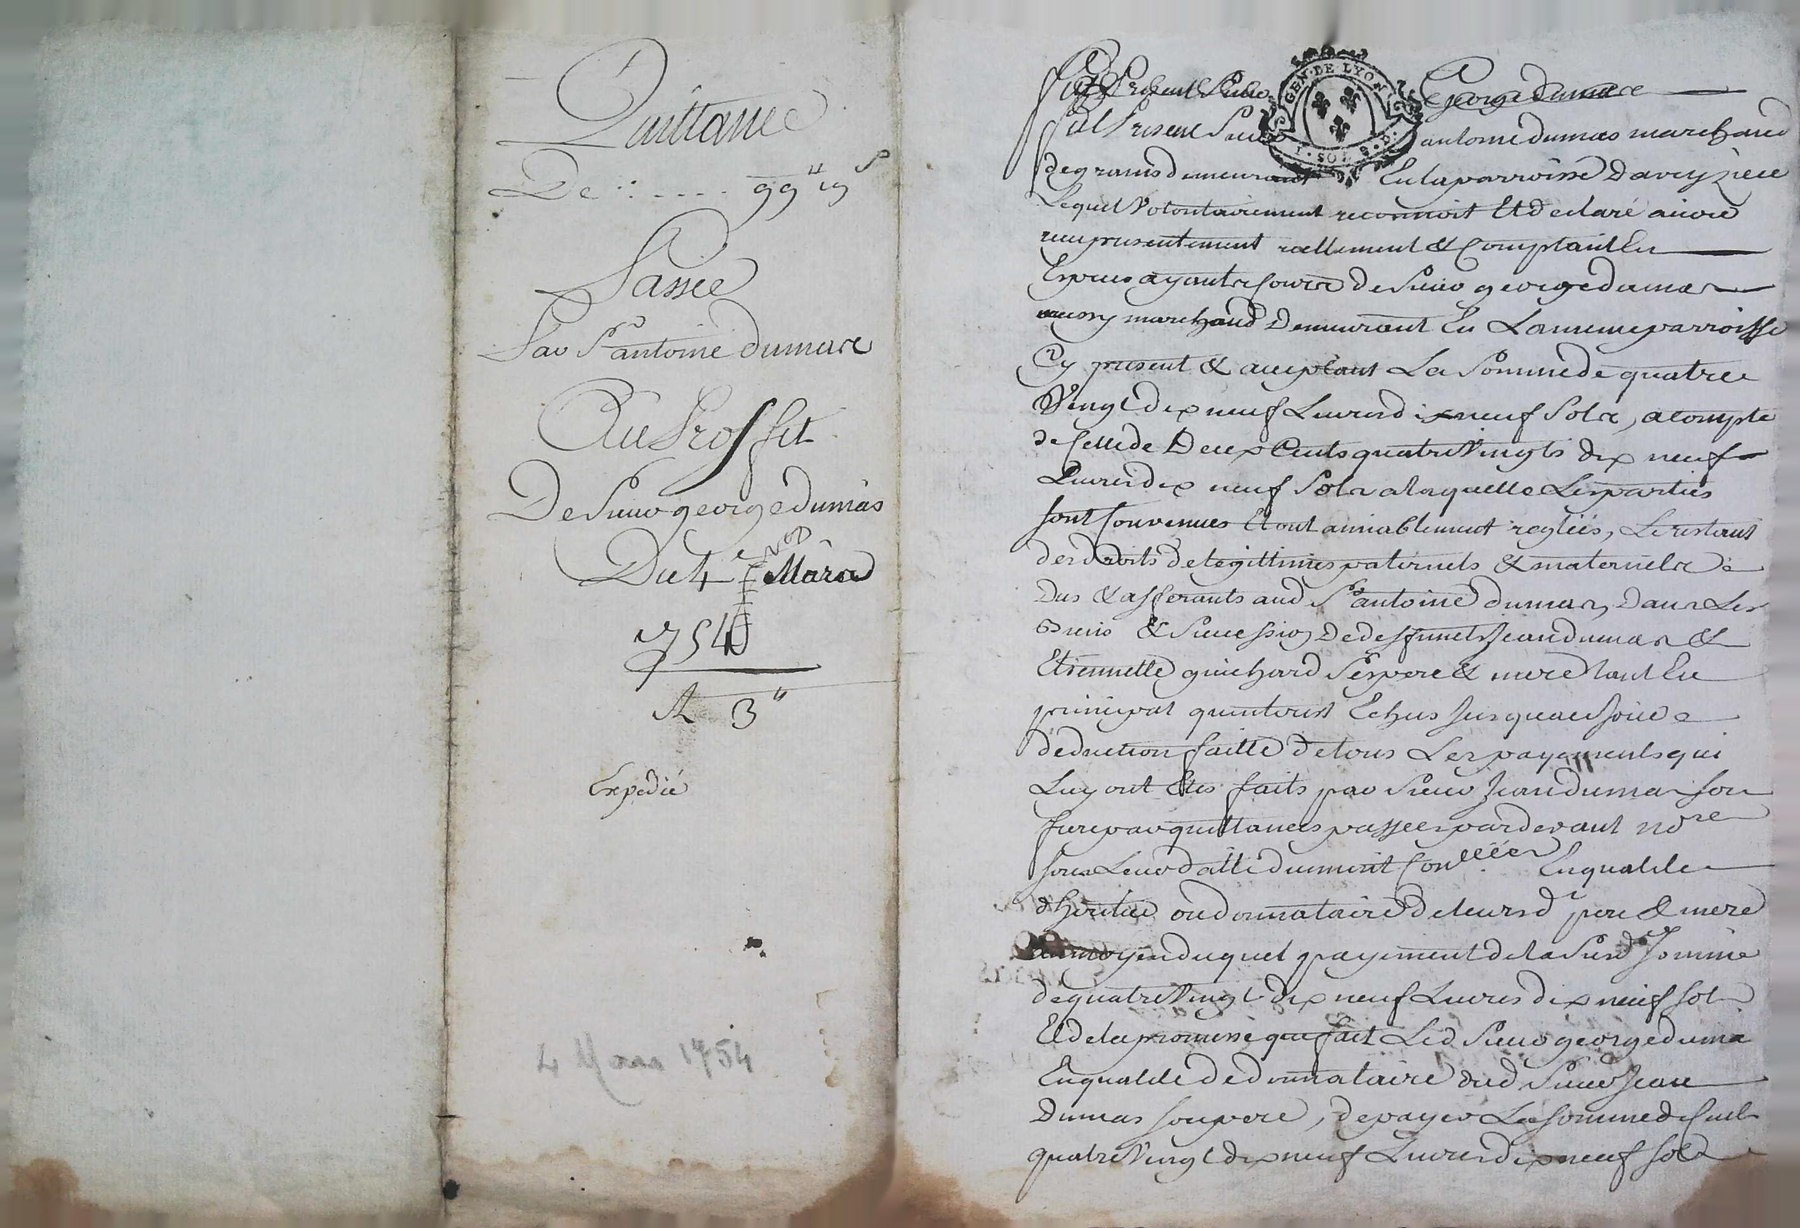 Quittance
De :: .... 99" 19 s
Passée
Par Sr antoine dumas
Au Proffit
De Sieur george dumas
Du 4e Mars
1754
3"
Expedié
4 Mars 1754
GEN·DE LYON
SOL
george dumas
fut Present Sieur antoine dumas marchand
de grains demeurant En la parroisse Daveyziere
Lequel Volontairement reconnoit Et declare avoir
reçu presentement réellement & Comptant En
Espèces ayants Cours de Sieur george dumas
aussy marchand Demeurant En La meme parroisse
Cy present & acceptant La Somme de quatre
Vingt dix neuf Livres dix neuf Sols, a compte
de Celle de Deux Cents quatre Vingts dix neuf
Livres dix neuf Sols a laquelle Les parties
sont Convenues Et ont amiablement reglées, Le restant
des droits de legittimes paternels & maternels
Dus & afferants aud Sr antoine dumas, Dans Les
Biens & Succession De deffunts Jean dumas &
Etiennette guichard Ses pere & mere tant En
principal qu'interest Echus Jusqu'a ce Jour
deduction faitte de tous Les payements qui
Luy ont Etés faits par Sieur Jean dumas son
frere par quittances passées pardevant nore
sous Leur datte duement Conllées. En qualité
d'héritier ou donnataire de leursd pere & mere
moyen duquel payement de la Susd Somme
de quatre Vingt dix neuf Livres dix neuf sols
Et de la promesse que fait Led Sieur george dumas
En qualité de donnataire dud Sieur Jean
Dumas son pere, de payer La Somme de Cent
quatre Vingt dix neuf Livres dix neuf sols